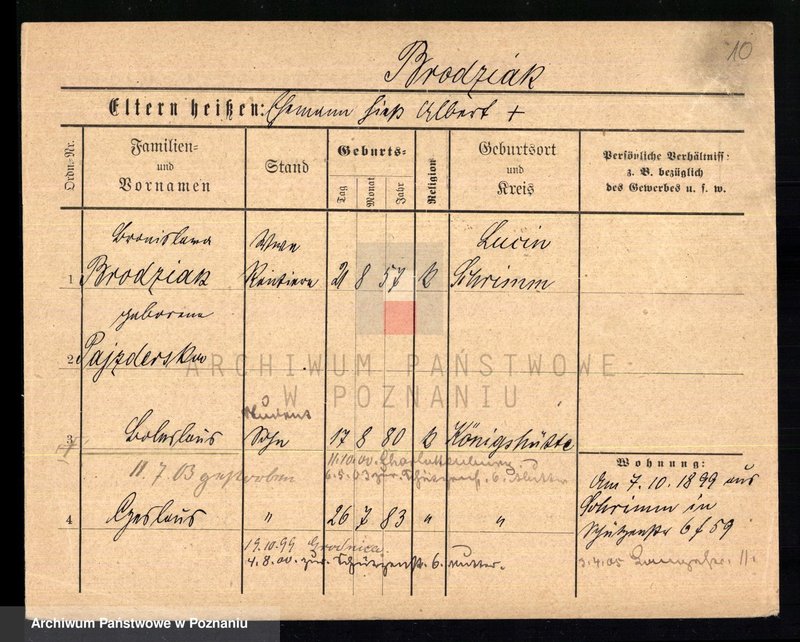 10
Brodziak
Eltern heißen: Ehemann hieß Albert +
Ordn. Nr.
Familien- und Vornamen
Stand
Geburts-
Tag
Monat
Jahr
Religion
Geburtsort und Kreis
Persönliche Verhältniss: z. B. bezüglich des Gewerbes u. s. w.
Bronislawa Wwe Lucin
1 Brodziak Rentiere 21 8 57 k Schrimm
geborene
2 Pajzderska
ARCHIWUM PAŃSTWOWE
W POZNANIU
Student
3 Boleslaus Sohn 17 8 80 k Königshütte
11.10.00. Charlottenburg
11.7.03 gestorben
6.5.03 zur. Schützenstr. 6. Mutter
Wohnung:
Am 7.10.1899 aus
Schrimm in
Schützenstr 6 f 59
3.4.05
11.
4 Czeslaus " 26 7 83 " "
19.10.99 Grodnica
4.8.00. zur. Schützenstr. 6. Mutter.
Archiwum Państwowe w Poznaniu